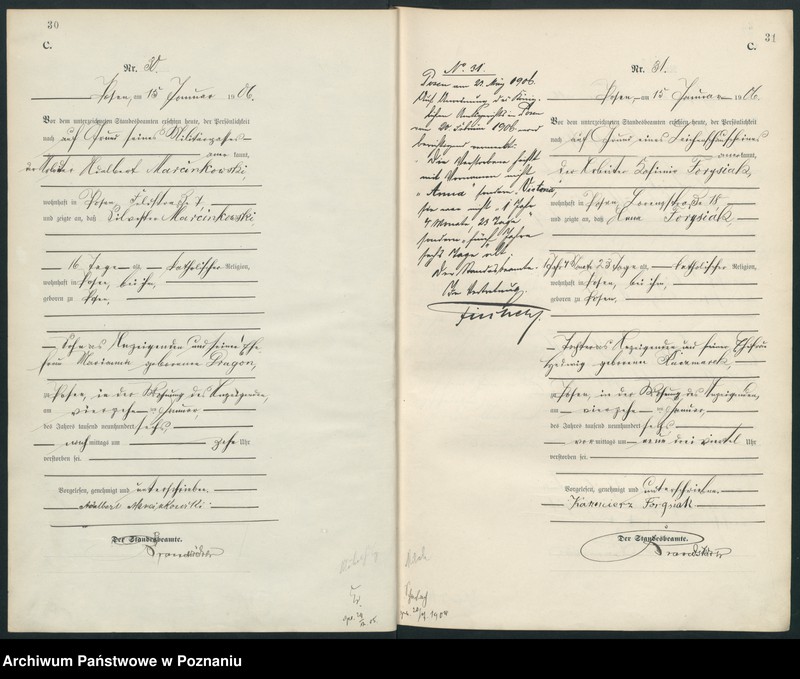 30
C.
Nr. 30.
Posen, am 15 Januar 1906.
Vor dem unterzeichneten Standesbeamten erschien heute, der Persönlichkeit
nach auf Grund seines Militärpasses
anerkannt,
der Arbeiter Adalbert Marcinkowski,
wohnhaft in Posen,
und zeigte an, daß Silvester Marcinkowski,
16 Tage alt, katholischer Religion,
wohnhaft in Posen, bei ihm,
geboren zu Posen,
Sohn des Anzeigenden und seiner Ehe-
frau Marianna geborenen Dragon,
zu Posen, in der Wohnung des Anzeigenden,
am vierzehn ten Januar,
des Jahres tausend neunhundert sechs,
nachmittags um Uhr
verstorben sei.
Vorgelesen, genehmigt und unterschrieben.
Adalbert Marcinkowski.
Der Standesbeamte.
31
C.
No. 31.
Posen am 1906.
Auf Anordnung des König-
lichen Amtsgerichts in Posen
vom 20 Februar 1906 wird
berichtigend vermerkt:
Die Verstorbene heißt
mit Vornamen nicht
"Anna" sondern "Victoria",
sie war nicht "1 Jahr
4 Monate, 23 Tage"
sondern "fünf Jahre
sechs Tage" alt.
Der Standesbeamte.
In Vertretung
Nr. 31.
Posen, am 15 Januar 1906.
Vor dem unterzeichneten Standesbeamten erschien heute, der Persönlichkeit
nach auf Grund eines Leichenschauscheines
anerkannt,
der Arbeiter Kasimir Forysiak,
wohnhaft in Posen, 18
und zeigte an, daß Anna Forysiak,
1 Jahr 4 Monate 23 Tage alt, katholischer Religion,
wohnhaft in Posen, bei ihm,
geboren zu Posen,
Tochter des Anzeigenden und seiner Ehefrau
Hedwig geborenen
zu Posen, in der Wohnung des Anzeigenden,
am vierzehn ten Januar,
des Jahres tausend neunhundert sechs
vormittags um neun drei viertel Uhr
verstorben sei.
Vorgelesen, genehmigt und unterschrieben.
Kazimierz Forysiak
Der Standesbeamte.
Archiwum Państwowe w Poznaniu